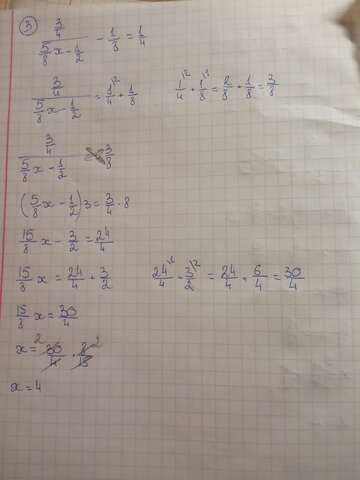 ③ (3/4)/(5/8 x - 1/2) - 1/8 = 1/4
(3/4)/(5/8 x - 1/2) = 1/4 \2 + 1/8    1/4 \2 + 1/8 \1 = 2/8 + 1/8 = 3/8
(3/4)/(5/8 x - 1/2) 3/8
(5/8 x - 1/2) 3 = 3/4 · 8
15/8 x - 3/2 = 24/4
15/8 x = 24/4 + 3/2    24/4 + 3/2 \2 = 24/4 + 6/4 = 30/4
15/8 x = 30/4
x = 30/4 · 8/15
x = 4